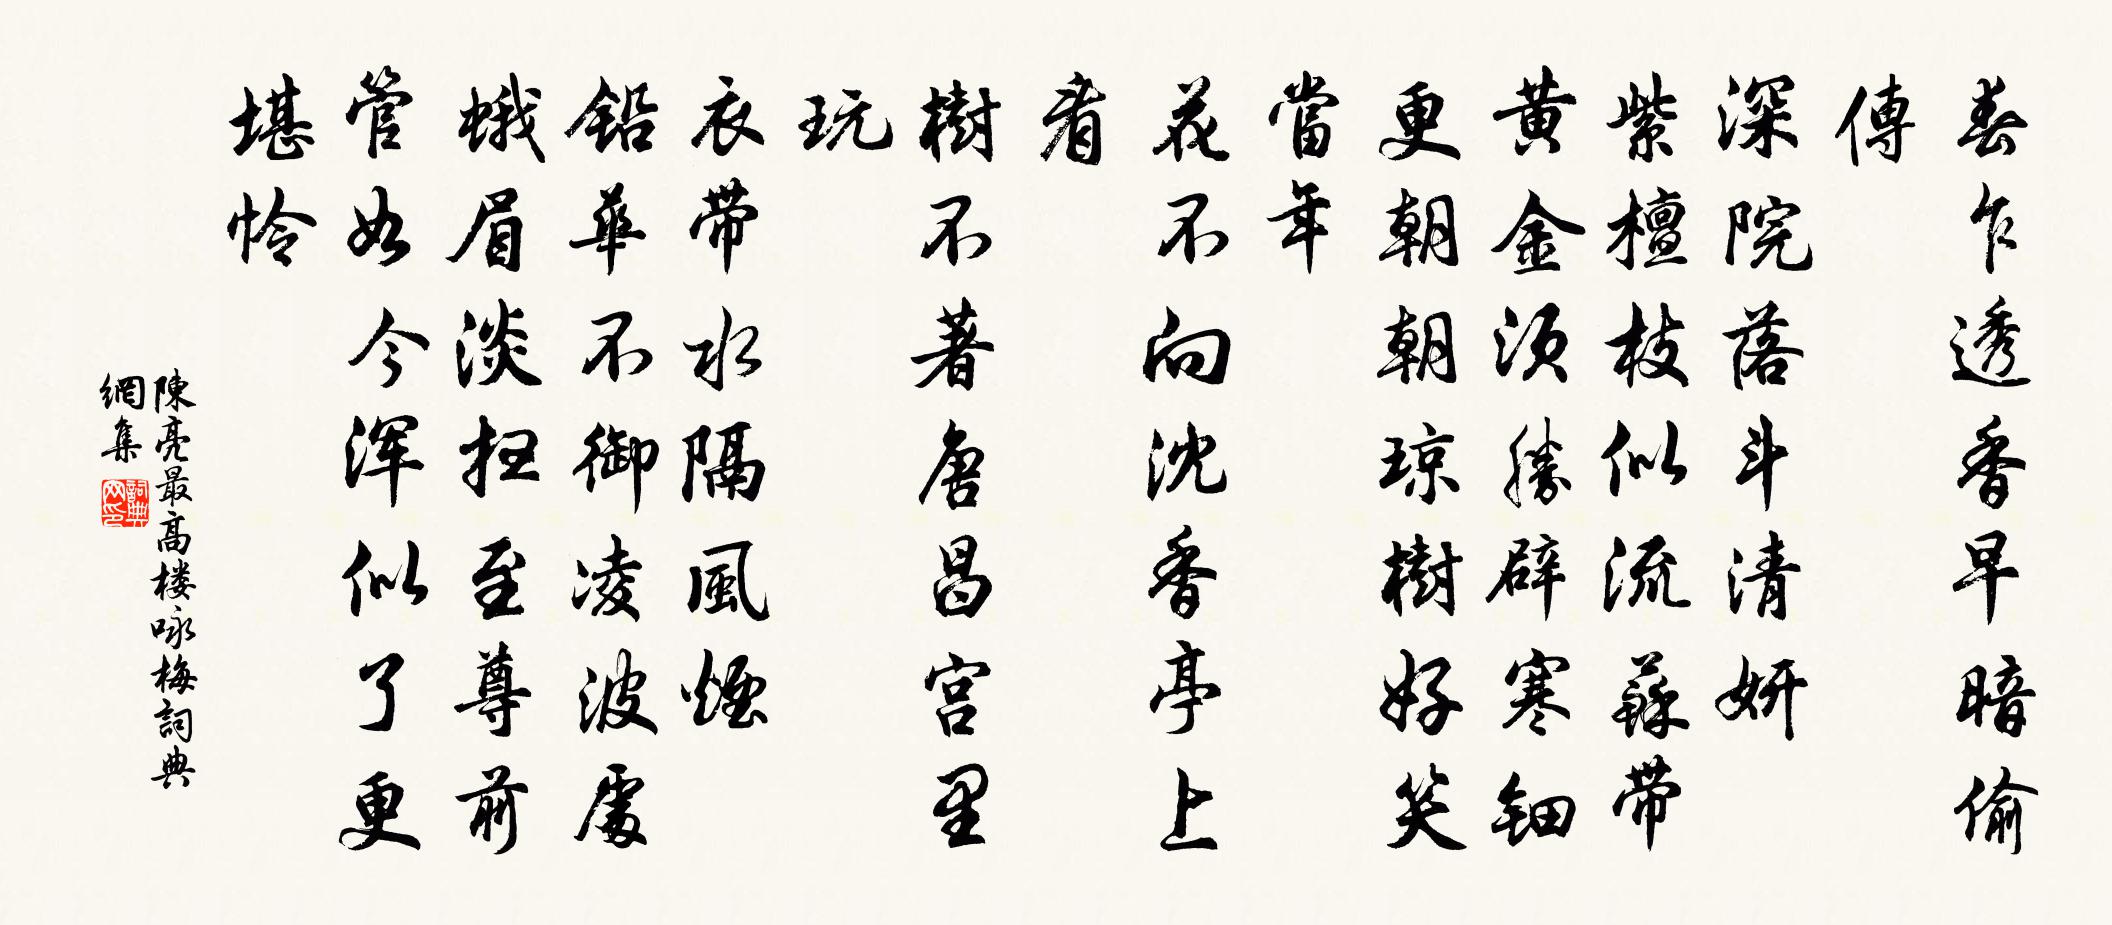 春乍透香早暗偷
傳
深院落斗清妍
紫檀枝似流蘇带
黄金须勝辟寒钿
更朝朝琼樹好笑
當年
花不向沈香亭上
看
樹不著唐昌宫里
玩
衣带水隔風煙
铅華不御凌波處
蛾眉淡扫至尊前
管如今浑似了更
堪怜
陳亮最高楼咏梅詞典
網集
詞典
网印